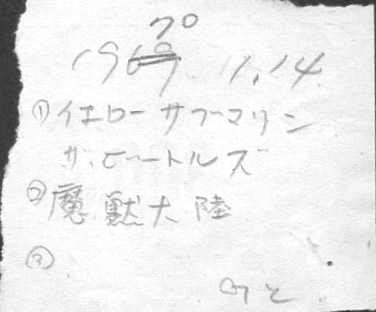 70
1969 11.14
①イエローサブマリン
ザ・ビートルズ
②魔獣大陸
③